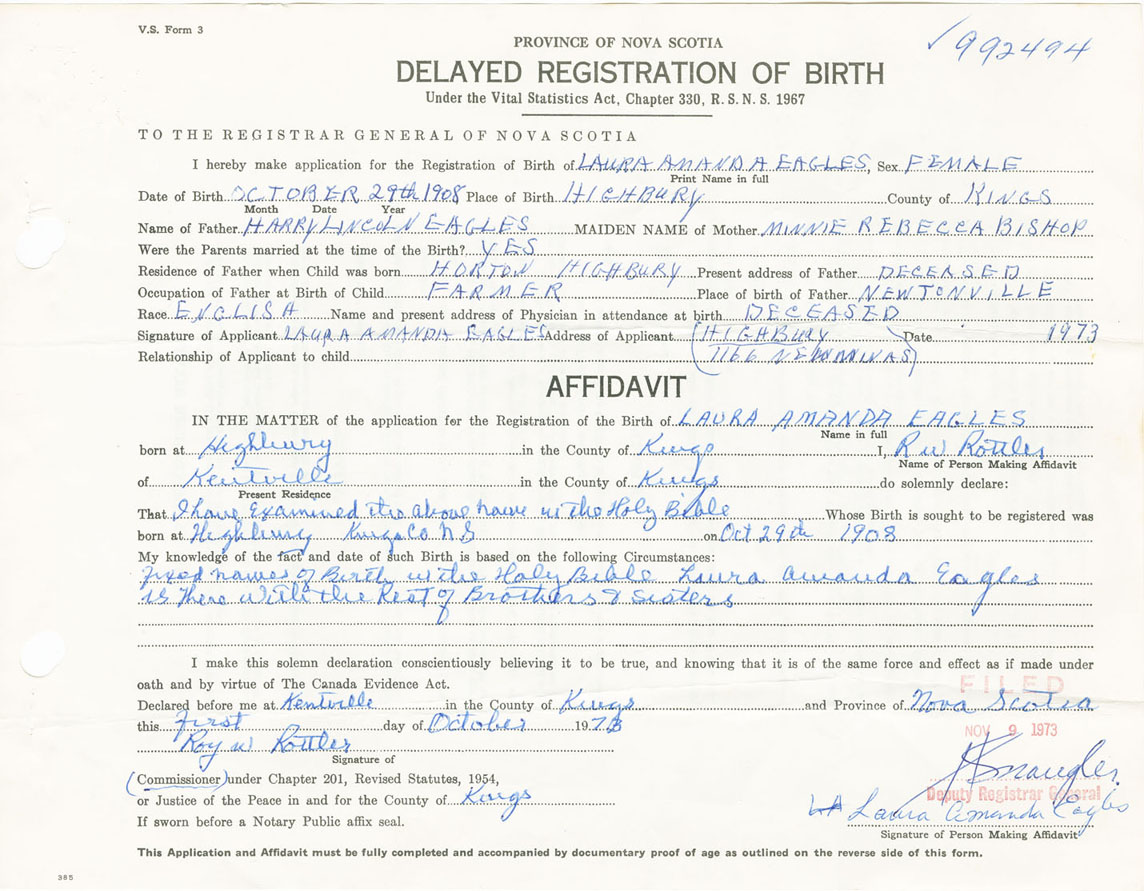 V.S. Form 3
✓992494
PROVINCE OF NOVA SCOTIA
DELAYED REGISTRATION OF BIRTH
Under the Vital Statistics Act, Chapter 330, R. S. N. S. 1967
TO THE REGISTRAR GENERAL OF NOVA SCOTIA
I hereby make application for the Registration of Birth of LAURA AMANDA EAGLES, Sex FEMALE
Print Name in full
Date of Birth OCTOBER 29th 1908 Place of Birth HIGHBURY County of KINGS
Month Date Year
Name of Father HARRY LINCOLN EAGLES MAIDEN NAME of Mother MINNIE REBECCA BISHOP
Were the Parents married at the time of the Birth? YES
Residence of Father when Child was born HORTON HIGHBURY Present address of Father DECEASED
Occupation of Father at Birth of Child FARMER Place of birth of Father NEWTONVILLE
Race ENGLISH Name and present address of Physician in attendance at birth DECEASED
Signature of Applicant LAURA AMANDA EAGLES Address of Applicant (HIGHBURY) Date 1973
Relationship of Applicant to child (1166 NEWMINAS)
AFFIDAVIT
IN THE MATTER of the application for the Registration of the Birth of LAURA AMANDA EAGLES
Name in full
born at Highbury in the County of Kings I, R W Rottler
Name of Person Making Affidavit
of Kentville in the County of Kings do solemnly declare:
Present Residence
That I have Examined the above name in the Holy Bible Whose Birth is sought to be registered was
born at Highbury Kings Co NS on Oct 29th 1908
My knowledge of the fact and date of such Birth is based on the following Circumstances:
names of Birth in the Holy Bible Laura Amanda Eagles
is There with the Rest of Brothers & Sisters
I make this solemn declaration conscientiously believing it to be true, and knowing that it is of the same force and effect as if made under
oath and by virtue of The Canada Evidence Act.
FILED
Declared before me at Kentville in the County of Kings and Province of Nova Scotia
this First day of October 1973
NOV 9 1973
Roy W Rottler
Signature of
(Commissioner) under Chapter 201, Revised Statutes, 1954,
Deputy Registrar General
or Justice of the Peace in and for the County of Kings
LA Laura Amanda Eagles
If sworn before a Notary Public affix seal.
Signature of Person Making Affidavit
This Application and Affidavit must be fully completed and accompanied by documentary proof of age as outlined on the reverse side of this form.
385